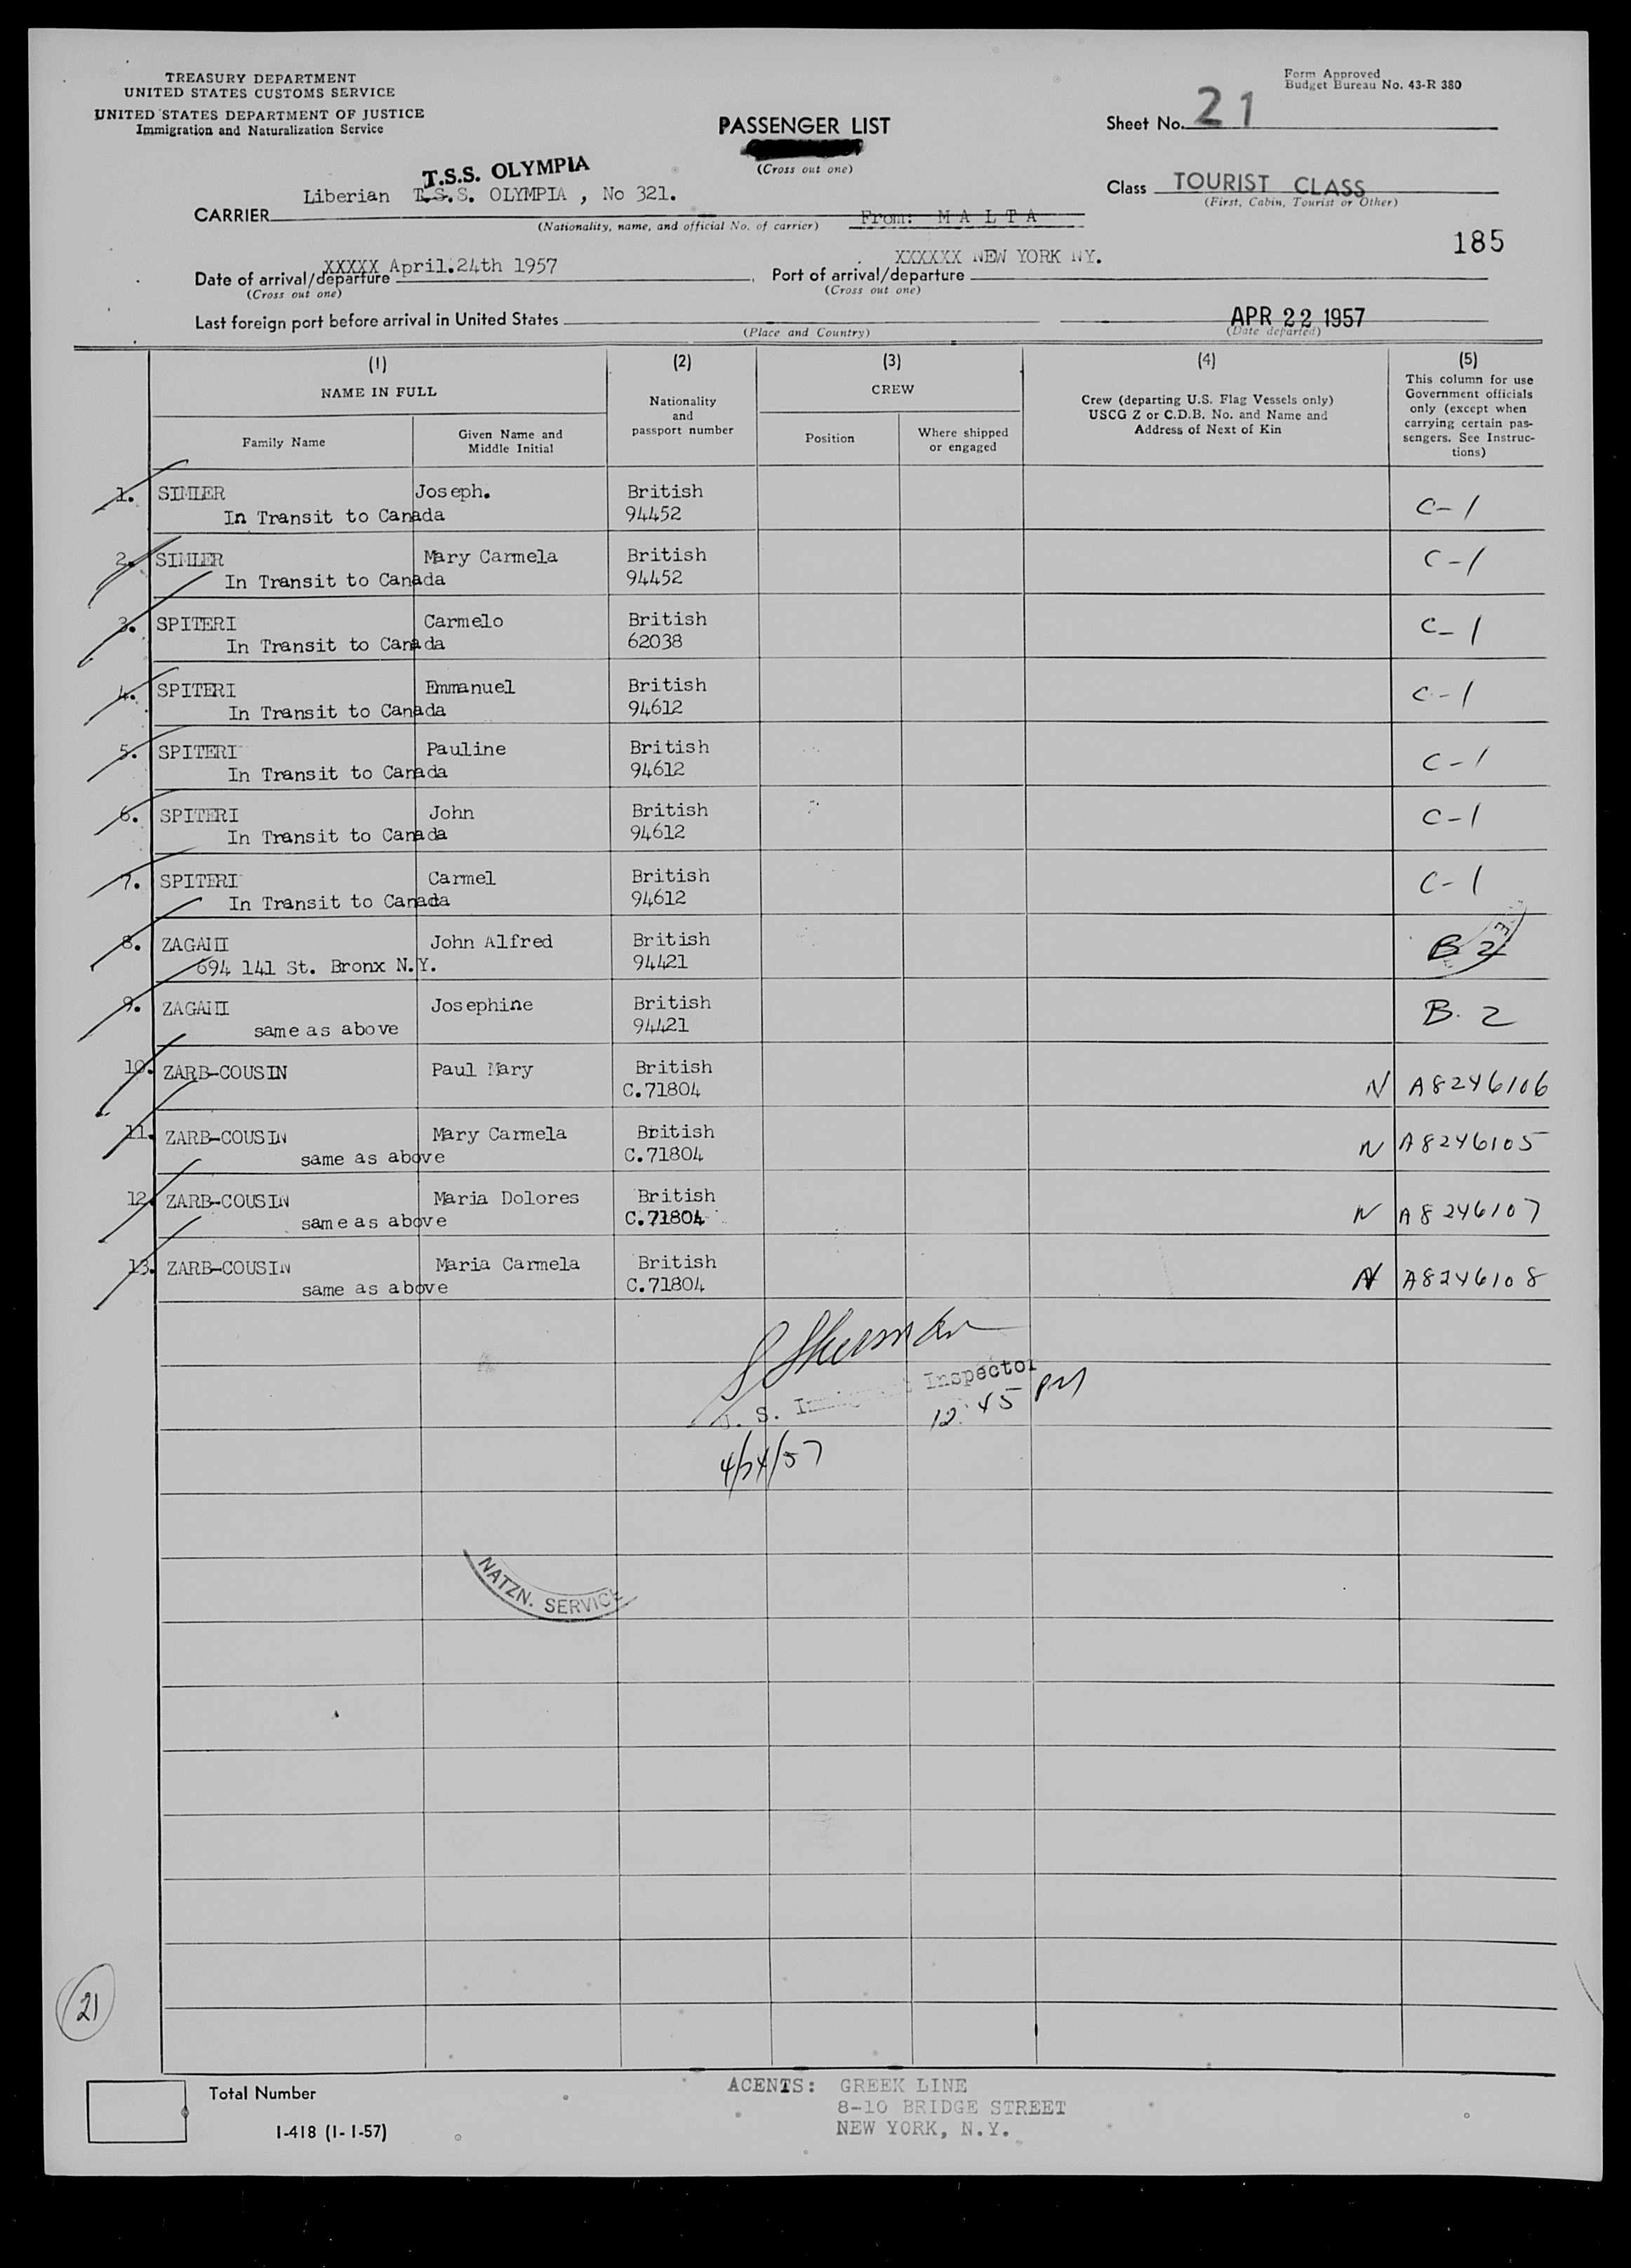 TREASURY DEPARTMENT
UNITED STATES CUSTOMS SERVICE
UNITED STATES DEPARTMENT OF JUSTICE
Immigration and Naturalization Service
Form Approved
Budget Bureau No. 43-R 380
PASSENGER LIST
(Cross out one)
Sheet No. 21
T.S.S. OLYMPIA
Liberian T.S.S. OLYMPIA , No 321.
CARRIER
(Nationality, name, and official No. of carrier)
From: M A L T A
Class TOURIST CLASS
(First, Cabin, Tourist or Other)
185
XXXXX April.24th 1957
Date of arrival/departure
(Cross out one)
XXXXXX NEW YORK NY.
Port of arrival/departure
(Cross out one)
Last foreign port before arrival in United States
(Place and Country)
APR 22 1957
(Date departed)
(1)
NAME IN FULL
Family Name
Given Name and
Middle Initial
(2)
Nationality
and
passport number
(3)
CREW
Position
Where shipped
or engaged
(4)
Crew (departing U.S. Flag Vessels only)
USCG Z or C.D.B. No. and Name and
Address of Next of Kin
(5)
This column for use
Government officials
only (except when
carrying certain pas-
sengers. See Instruc-
tions)
1. SIMLER Joseph. British C-1
In Transit to Canada 94452
2. SIMLER Mary Carmela British C-1
In Transit to Canada 94452
3. SPITERI Carmelo British C-1
In Transit to Canada 62038
4. SPITERI Emmanuel British C-1
In Transit to Canada 94612
5. SPITERI Pauline British C-1
In Transit to Canada 94612
6. SPITERI John British C-1
In Transit to Canada 94612
7. SPITERI Carmel British C-1
In Transit to Canada 94612
8. ZAGAMI John Alfred British B 2
694 141 St. Bronx N.Y. 94421
9. ZAGAMI Josephine British B. 2
same as above 94421
10. ZARB-COUSIN Paul Mary British N A8246106
C.71804
11. ZARB-COUSIN Mary Carmela British N A8246105
same as above C.71804
12. ZARB-COUSIN Maria Dolores British N A8246107
same as above C.71804
13. ZARB-COUSIN Maria Carmela British N A8246108
same as above C.71804
S Sherman
U. S. Immigrant Inspector
12:45 PM
4/24/57
NATZN. SERVICE
21
Total Number
I-418 (1-1-57)
AGENTS: GREEK LINE
8-10 BRIDGE STREET
NEW YORK, N.Y.